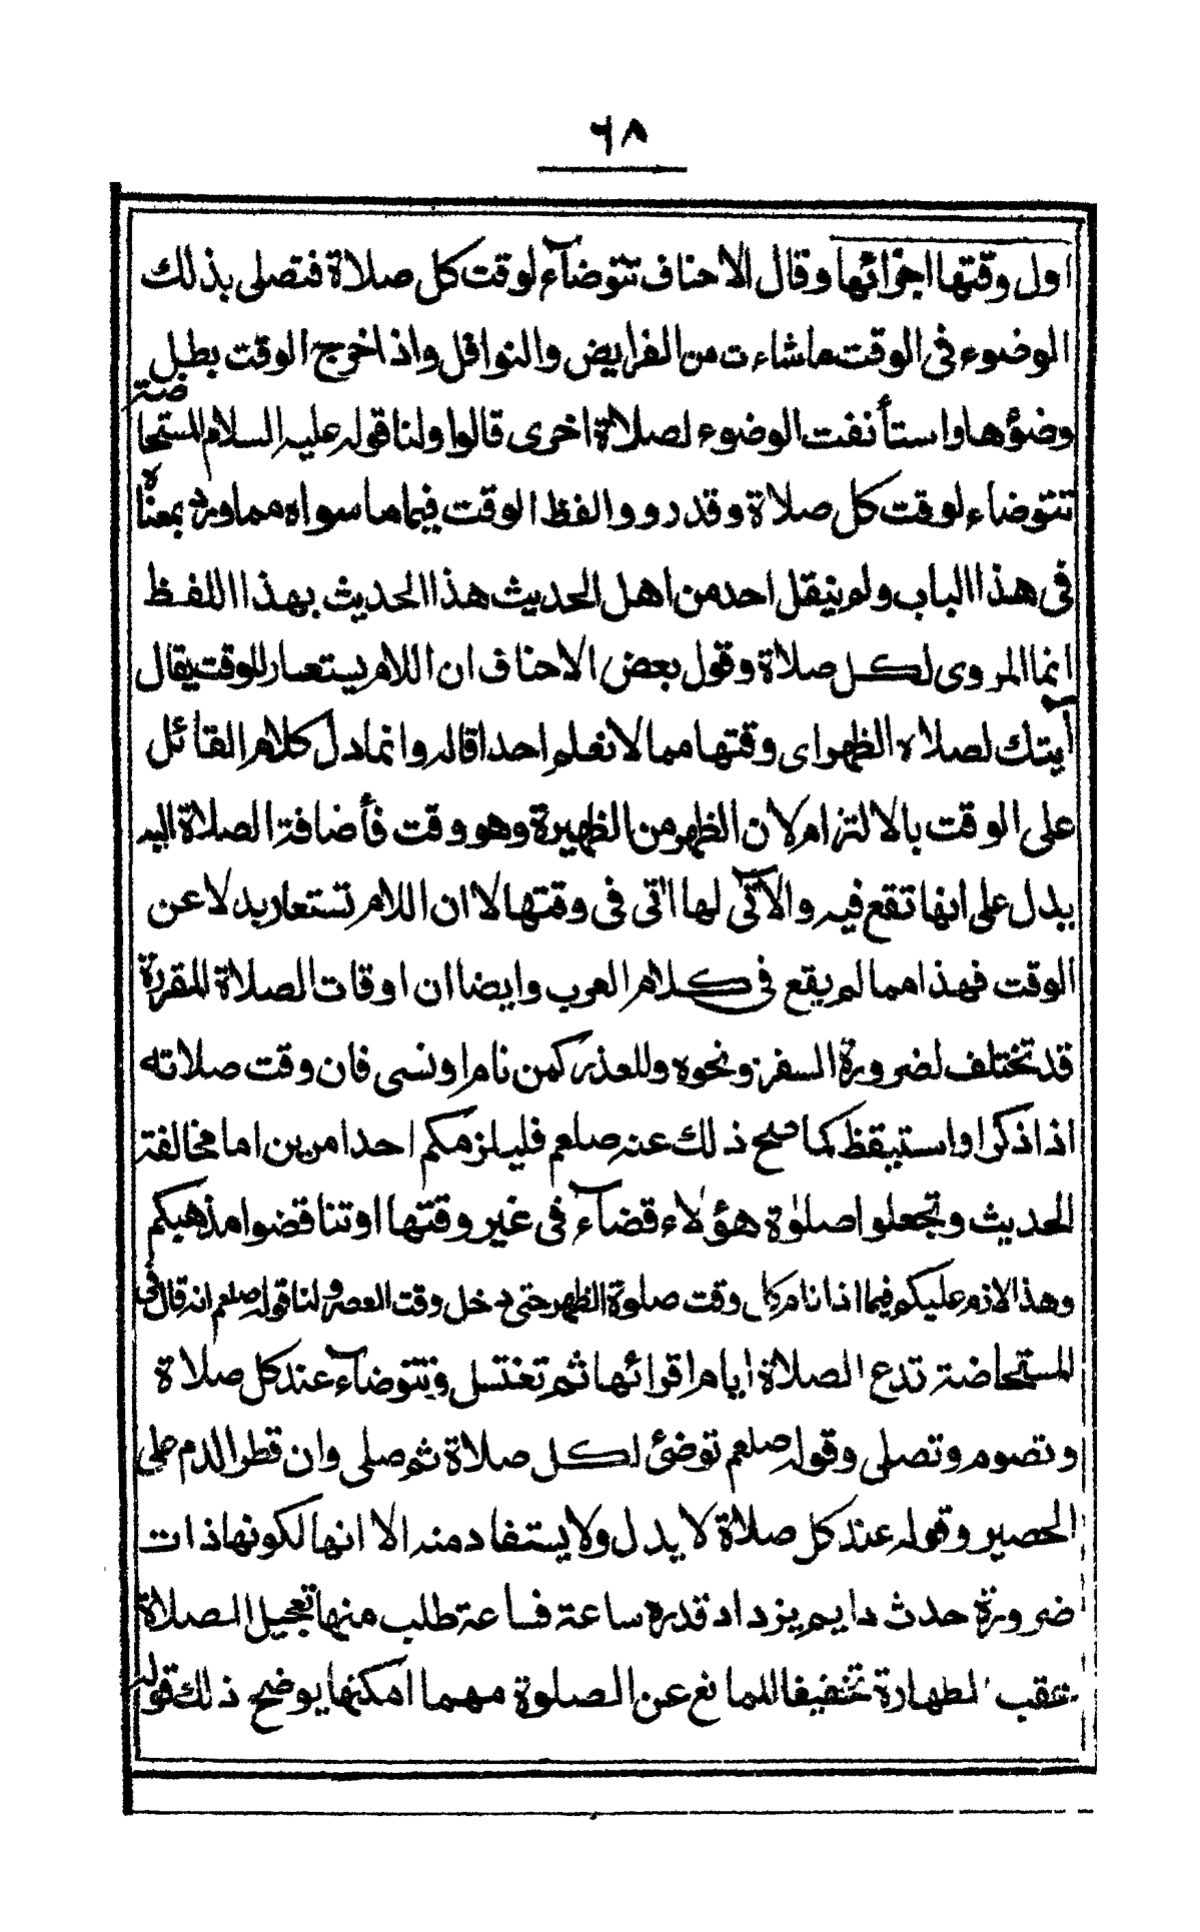 ٦٨
اول وقتها اجزائها وقال الاحناف تتوضآء لوقت كل صلاة فتصلى بذلك
الوضوء فى الوقت ماشاءت من الفرايض والنوافل واذا خرج الوقت بطل
وضؤها واستأنفت الوضوء لصلاة اخرى قالوا ولنا قوله عليه السلام المستحاضة
تتوضاء لوقت كل صلاة وقد رووا لفظ الوقت فيما ماسواه مما ورد بمعناه
فى هذا الباب ولم ينقل احد من اهل الحديث هذا الحديث بهذا اللفظ
انما المروى لكل صلاة وقول بعض الاحناف ان اللام يستعار للوقت يقال
آيتك لصلاة الظهر اى وقتها مما لا نعلم احدا قاله وانما دل كلام القائل
على الوقت بالالتزام لان الظهر من الظهيرة وهو وقت فأضافة الصلاة اليه
يدل على انها تقع فيه والآتى لها اتى فى وقتها لا ان اللام تستعار بدلا عن
الوقت فهذا مما لم يقع فى كلام العرب وايضا ان اوقات الصلاة المقررة
قد تختلف لضرورة السفر ونحوه وللعذر كمن نام او نسى فان وقت صلاته
اذا ذكر او استيقظ كما صح ذلك عنه صلعم فليلزمكم احد امرين اما مخالفة
الحديث وتجعلوا صلوة هؤلاء قضآء فى غير وقتها او تناقضوا مذهبكم
وهذا لازم عليكم فيما اذا نام كل وقت صلوة الظهر حتى دخل وقت العصر ولنا قوله صلعم انه قال فى
المستحاضة تدع الصلاة ايام اقرائها ثم تغتسل وتتوضآء عند كل صلاة
وتصوم وتصلى وقوله صلعم توضئ لكل صلاة ثم صلى وان قطر الدم على
الحصير وقوله عند كل صلاة لا يدل ولا يستفاد منه الا انها لكونها ذات
ضرورة حدث دايم يزداد قدره ساعة فساعة طلب منها تعجيل الصلاة
عقب لطهارة تخفيفا للمانع عن الصلوة مهما امكنها يوضح ذلك قوله